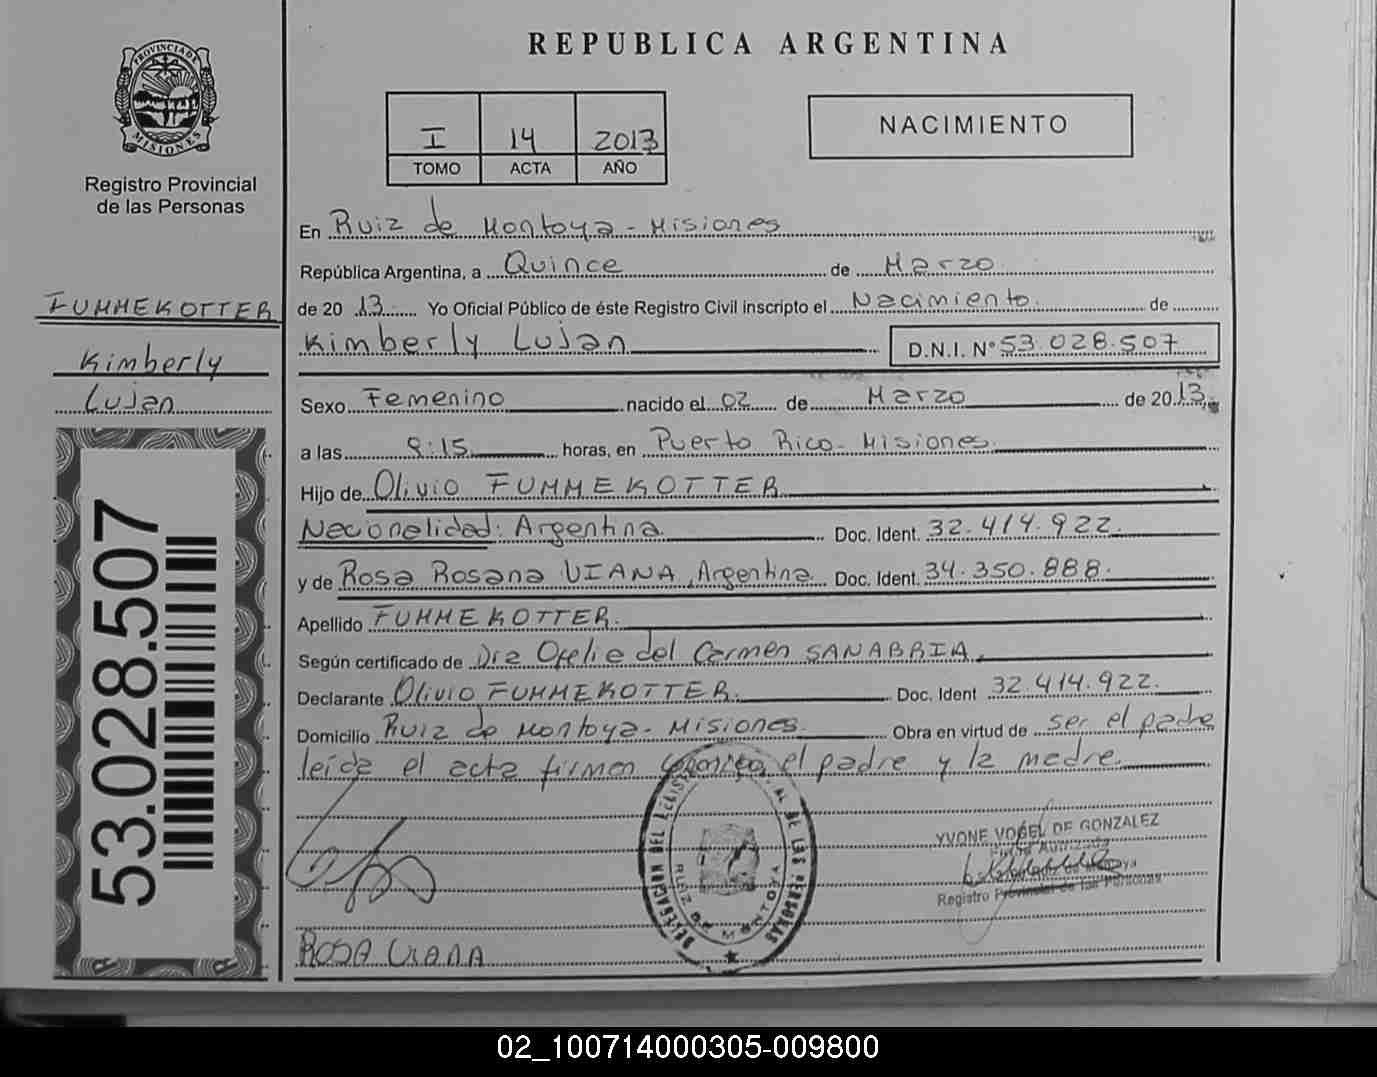 REPUBLICA ARGENTINA
PROVINCIA DE
MISIONES
Registro Provincial
de las Personas
I 14 2013
TOMO ACTA AÑO
NACIMIENTO
FUMMEKOTTER
Kimberly
Lujan
53.028.507
En Ruiz de Montoya - Misiones
República Argentina, a Quince de Marzo
de 20 13 Yo Oficial Público de éste Registro Civil inscripto el Nacimiento de
Kimberly Lujan D.N.I. N° 53.028.507
Sexo Femenino nacido el 02 de Marzo de 20 13
a las 9:15 horas, en Puerto Rico - Misiones.
Hijo de Olivio FUMMEKOTTER
Nacionalidad: Argentina Doc. Ident. 32.414.922.
y de Rosa Rosana VIANA, Argentina Doc. Ident. 34.350.888.
Apellido FUMMEKOTTER.
Según certificado de Dra Ofelia del Carmen SANABRIA.
Declarante Olivio FUMMEKOTTER. Doc. Ident 32.414.922.
Domicilio Ruiz de Montoya - Misiones. Obra en virtud de ser el padre
leída el acta firman conmigo, el padre y la madre.
DELEGACION DEL REGIST DE LAS PERSONAS
RUIZ DE MONTOYA
YVONE VOGEL DE GONZALEZ
Registro Provincial de las Personas
ROSA VIANA
02_100714000305-009800